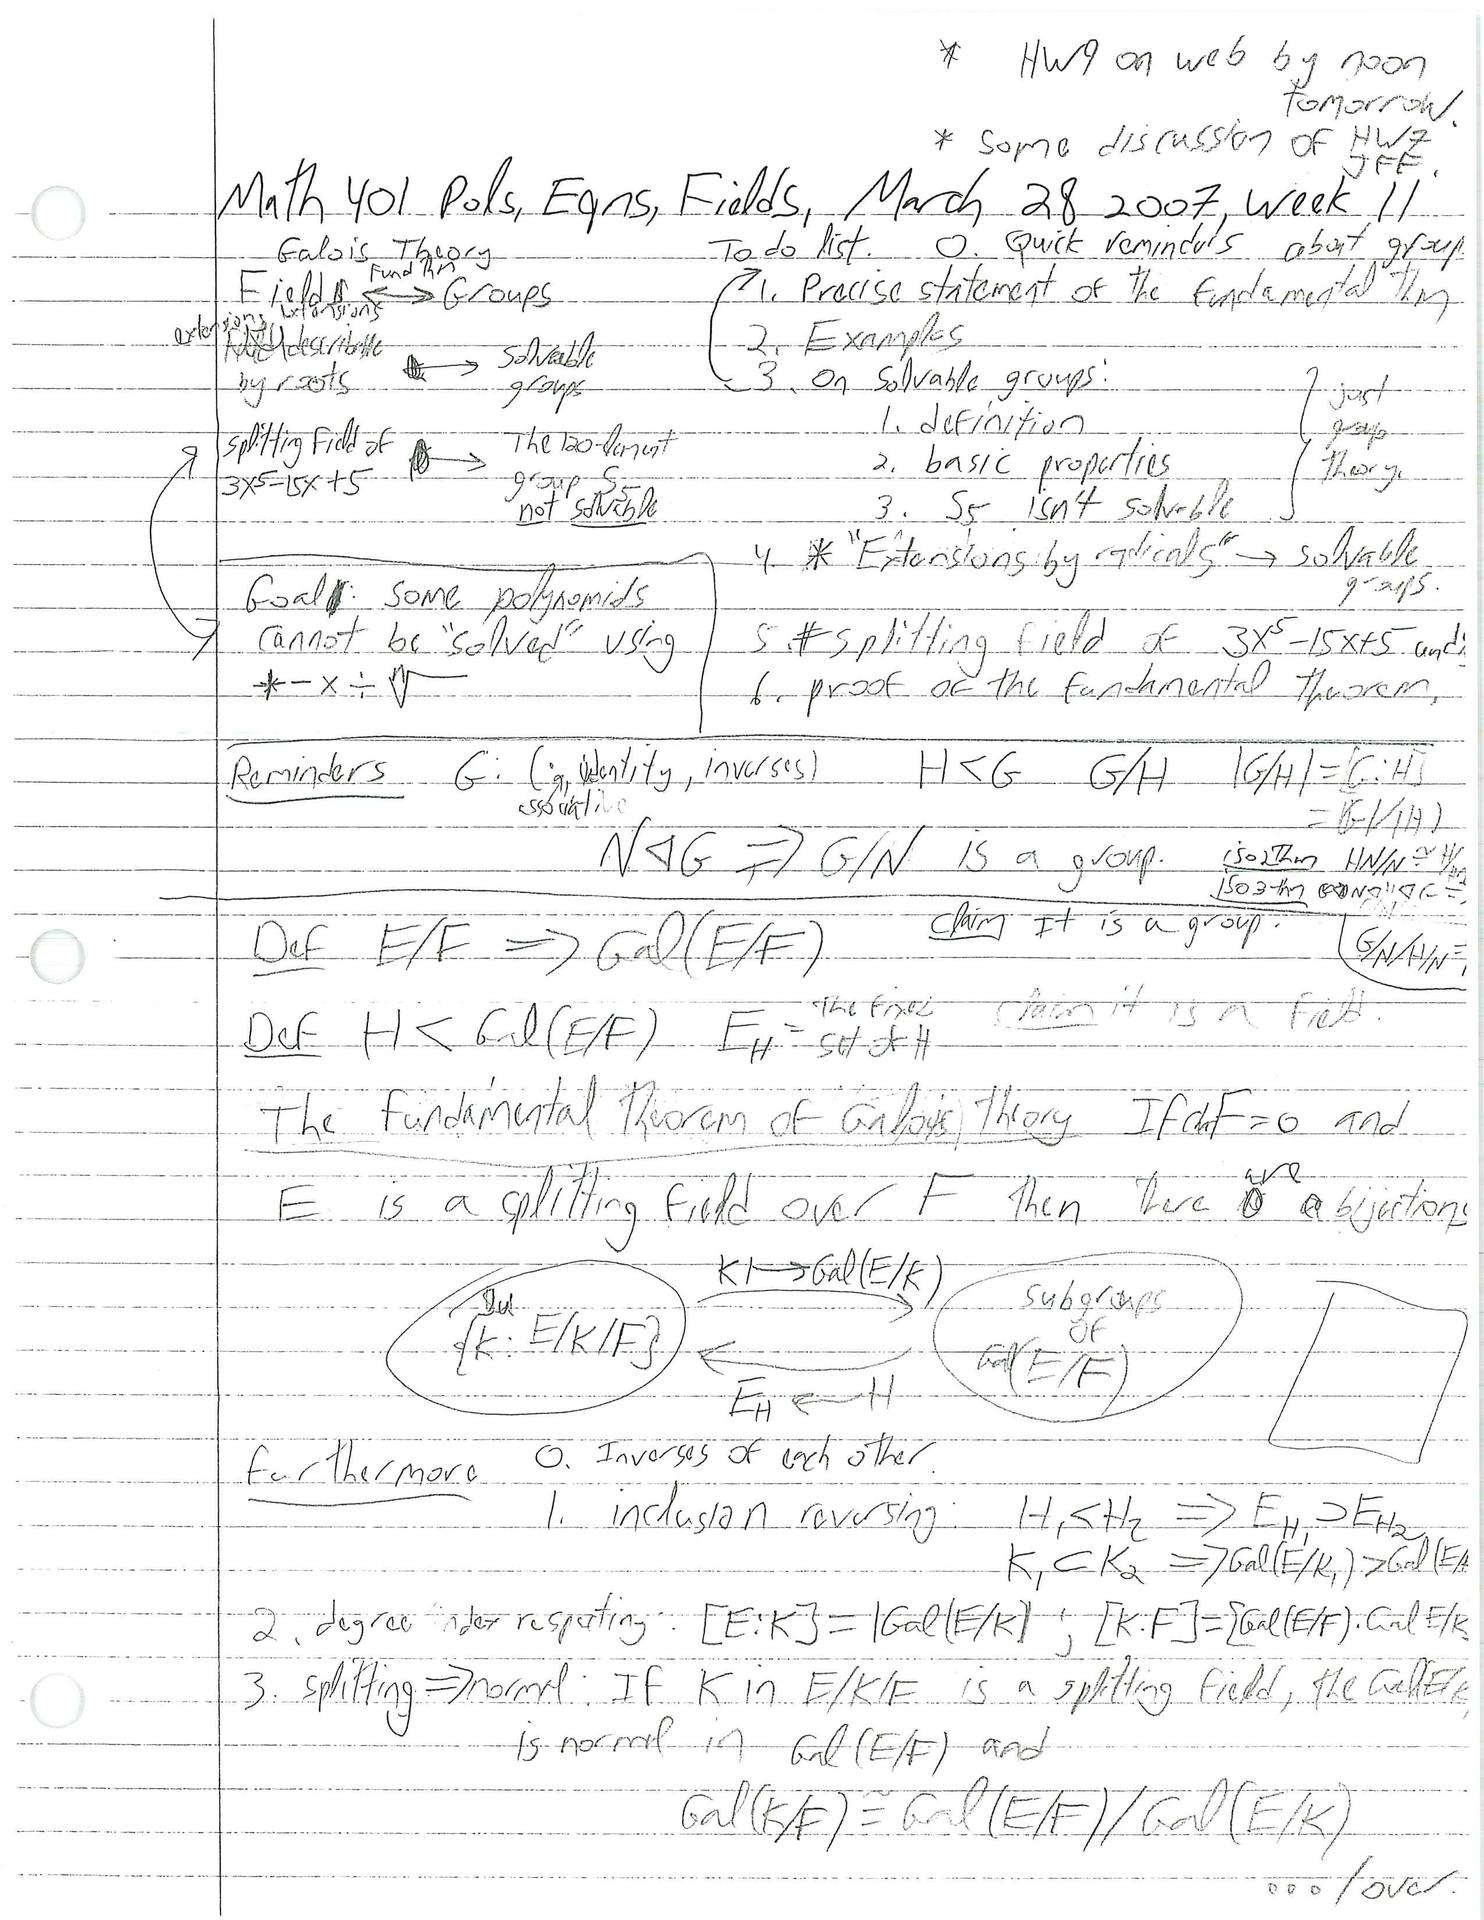 * HW9 on web by noon
tomorrow.
* Some discussion of HW7
JFF.
Math 401 Pols, Eqns, Fields, March 28 2007, Week 11
Galois Theory
Fund thm
Field ⟷ Groups
extensions
extensions describable
by roots → solvable
groups
splitting field of
3x⁵-15x+5 → The 120-element
group S₅
not solvable
Goal: some polynomials
cannot be "solved" using
+ - × ÷ √
To do list. 0. Quick reminders about group
1. Precise statement of the fundamental thm
2. Examples
3. on solvable groups:
1. definition
2. basic properties
3. S₅ isn't solvable
just
group
theory.
4. * "Extensions by radicals" → solvable
groups.
5. * splitting field of 3x⁵-15x+5 and
6. proof of the fundamental theorem.
Reminders G: (·, identity, inverses) H<G G/H |G/H|=[G:H]
associative
=|G|/|H|
N◁G ⇒ G/N is a group. iso 2 thm HN/N ≅
iso 3 thm
G/N/H/N =
Def E/F ⇒ Gal(E/F) claim It is a group.
Def H < Gal(E/F) E_H = the fixed set of H claim it is a field.
The Fundamental Theorem of Galois Theory If char F=0 and
E is a splitting field over F then there are bijections
K ↦ Gal(E/K)
{K: E/K/F}
subgroups
of
Gal(E/F)
E_H ← H
Furthermore 0. Inverses of each other.
1. inclusion reversing: H₁<H₂ ⇒ E_H₁ ⊃ E_H₂
K₁ ⊂ K₂ ⇒ Gal(E/K₁) > Gal(E/K
2. degree index respecting: [E:K] = |Gal(E/K)| ; [K:F]=[Gal(E/F):Gal E/K
3. splitting ⇒ normal: If K in E/K/F is a splitting field, the Gal(E/K
is normal in Gal(E/F) and
Gal(K/F) ≅ Gal(E/F)/Gal(E/K)
.../over.